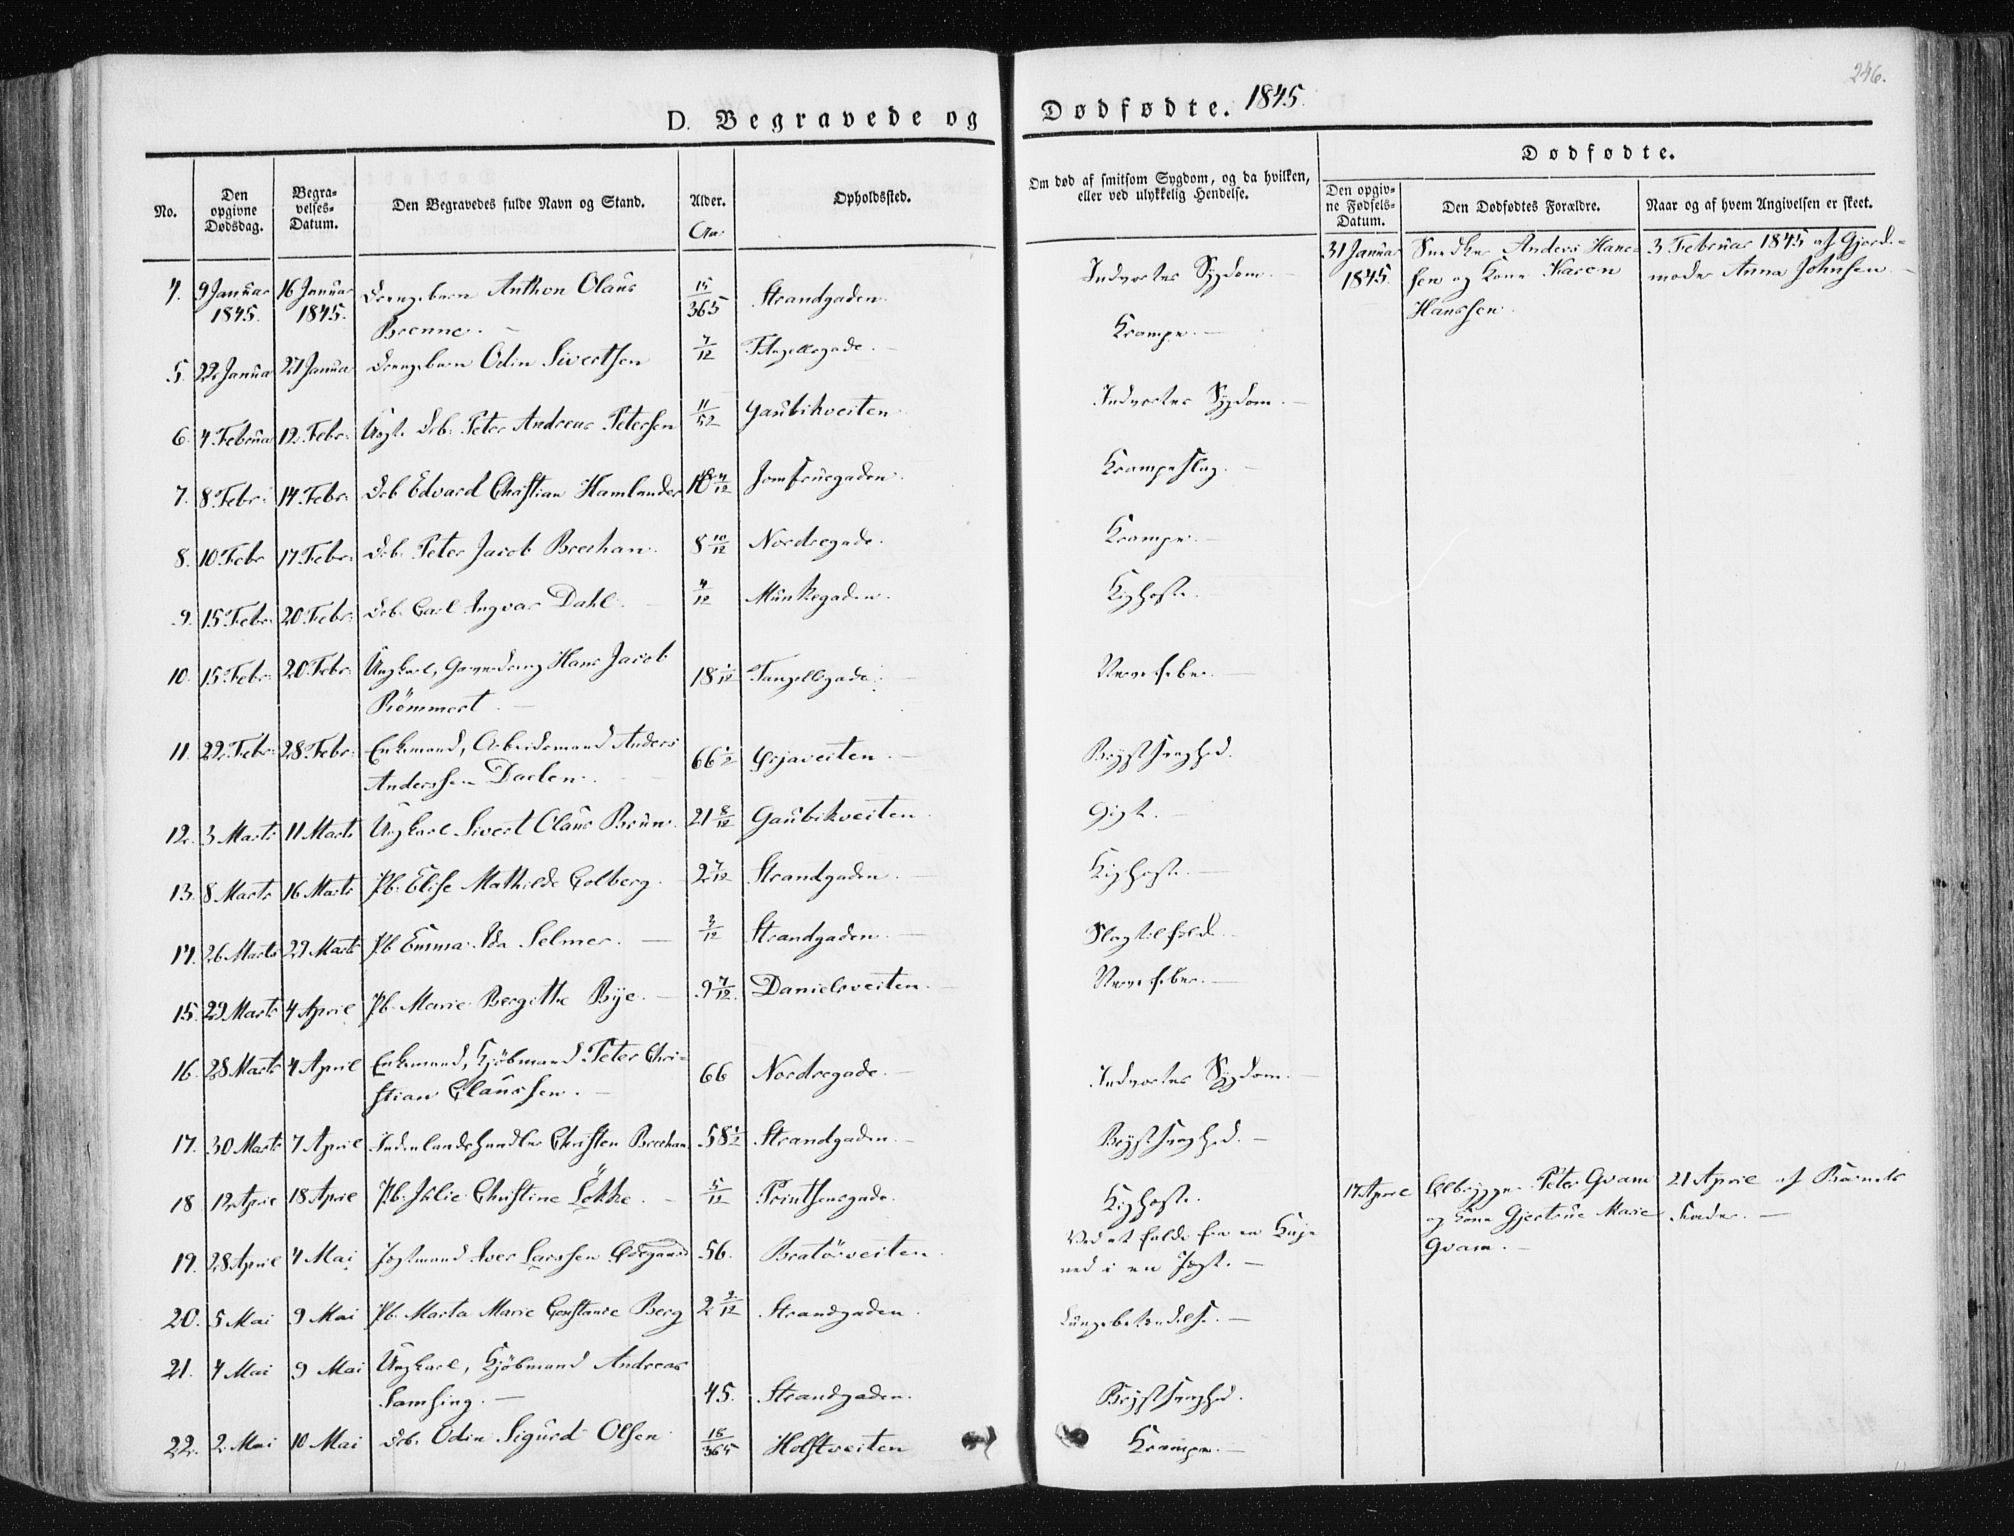 246.
D. Begravede og Dødfødte. 1845.
No.
Den opgivne Dødsdag.
Begravelses-Datum.
Den Begravedes fulde Navn og Stand.
Alder.
Aar
Opholdssted.
Om død af smitsom Sygdom, og da hvilken, eller ved ulykkelig Hendelse.
Dødfødte.
Den opgivne Fødsels-Datum.
Den Dødfødtes Forældre.
Naar og af hvem Angivelsen er skeet.
4. 9 Januar 1845. 16 Januar 1845. Drengebarn Anthon Olaus Brenne. 15/365 Strandgaden. Indvortes Sygdom.
31 Januar 1845. Snedker Anders Hansen og Kone Karen Hanssen. 3 Februar 1845 af Gjordemoder Anna Johnsen.
5. 22 Janua 27 Janua Drengebarn Odin Sivertsen 7/12 Krampe.
6. 4 Februa 12 Febr. Ægt. Drb. Peter Andreas Petersen 11/52 Gaubikveiten. Indvortes Sygdom.
7. 8 Febr. 14 Febr. Drb Edvard Christian Hamlander Jomfruegaden. Krampeslag.
8. 10 Febr 17 Febr. Drb. Peter Jacob Breehan. 8 10/12 Nordregade. Krampe.
9. 15 Febr. 20 Febr. Drb. Carl Ingvar Dahl. 4/12 Munkegaden. Kighoste.
10. 15 Febr. 20 Febr. Ungkarl, Hans Jacob Römmert. 18 1/12 Nervefeber.
11. 22 Febr. 28 Febr. Enkemand, Arbeidsmand Anders Anderssen Daelen. 66 1/2 Ørjaveiten. Brystsvaghed.
12. 3 Marts 11 Marts Ungkarl Sivert Olaus Bruun. 21 8/12 Gaubikveiten. Gigt.
13. 8 Marts 16 Marts Pb. Elise Mathilde Colberg. 2 7/12 Strandgaden. Kighoste.
14. 26 Marts 27 Marts Pb Emma Ida Selmer. 3/12 Strandgaden. Slagtilfeld.
15. 29 Marts 4 April Pb. Marie Bergitthe Bye. 9 7/12. Danielsveiten. Nervefeber.
16. 28 Marts 4 April Enkemand, Kjöbmand Peter Christian Claussen. 66 Nordregade. Indvortes Sygdom.
17. 30 Marts 7 April Indenlandshandler Christen Breehan. 58 1/2 Strandgaden. Brystsvaghed.
18 12 April 18 April Pb. Julie Christine Lökke. 5/12 Printsensgade. Kighoste.
17 April Ølbrygger Peter Gvam og Kone Gjertrue Marie Gvam. 21 April af Barnets Fader.
19. 28 April 4 Mai Jægtmand Iver Larssen Ødegaard 56. Bratörveiten. Ved at falde fra en Kaje ned i en Jægt.
20. 5 Mai 9 Mai Pb. Marta Marie Constance Berg 2 2/12 Strandgaden. Lungebetændelse.
21. 4 Mai 9 Mai Ungkarl, Kjöbmand Andreas Samsing. 45. Strandgaden. Brystsvaghed.
22. 2 Mai 10 Mai Drb. Odin Sigurd Olsen. 16/365 Holstveiten Krampe.